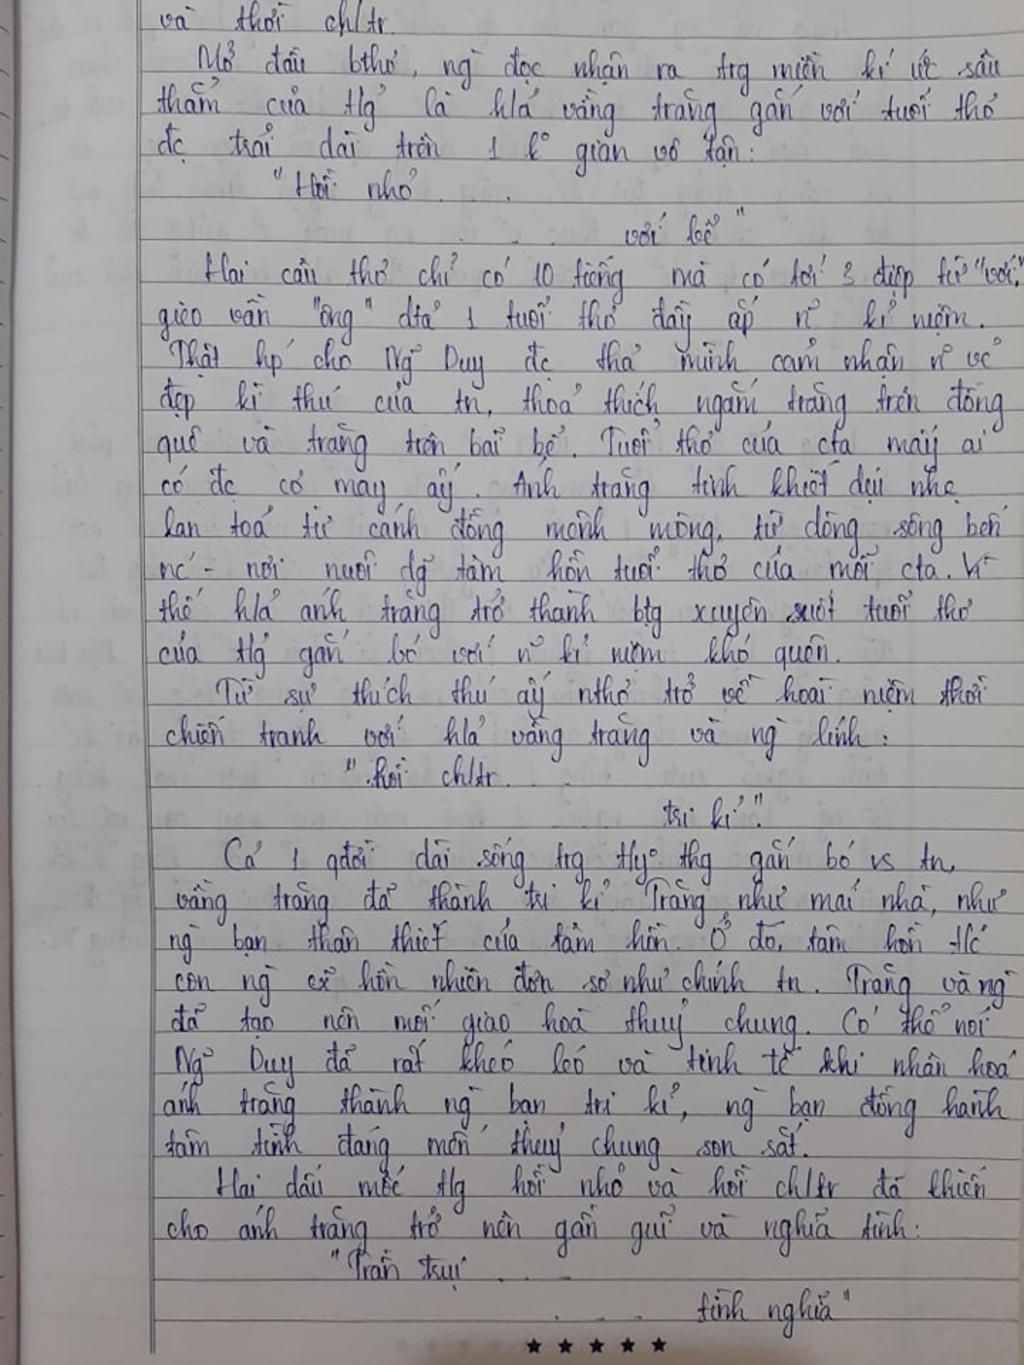 và thời ch/tr.
Mở đầu bthơ, ng đọc nhận ra trg miền kí ức sâu
thẳm của tg là h/ả vầng trăng gắn với tuổi thơ
đc trải dài trên 1 k gian vô tận:
"Hồi nhỏ . . .
. . . với bể"
Hai câu thơ chỉ có 10 tiếng mà có tới 3 điệp từ "với",
gieo vần "ông" dtả 1 tuổi thơ đầy ắp n~ kỉ niệm.
Thật hp' cho Ng~ Duy đc thả mình cảm nhận n~ vẻ
đẹp kì thú của tn, thoả thích ngắm trăng trên đồng
quê và trăng trên bãi bể. Tuổi thơ của cta mấy ai
có đc cơ may ấy. Ánh trăng tinh khiết dịu nhẹ
lan toả từ cánh đồng mênh mông, từ dòng sông bến
nc' - nơi nuôi dg~ tâm hồn tuổi thơ của mỗi cta. Vì
thế h/ả ánh trăng trở thành btg xuyên suốt tuổi thơ
của tg gắn bó với n~ kỉ niệm khó quên.
Từ sự thích thú ấy nthơ trở về hoài niệm thời
chiến tranh với h/ả vầng trăng và ng lính:
"hồi ch/tr . . .
tri kỉ".
Cả 1 qđời dài sống trg thg gắn bó vs tn,
vầng trăng đã thành tri kỉ. Trăng như mái nhà, như
ng bạn thân thiết của tâm hồn. Ở đó, tâm hồn
con ng cx~ hồn nhiên đơn sơ như chính tn. Trăng và ng
đã tạo nên mối giao hoà thuỷ chung. Có thể nói
Ng~ Duy đã rất khéo léo và tinh tế khi nhân hoá
ánh trăng thành ng bạn tri kỉ, ng bạn đồng hành
tâm tình đáng mến thuỷ chung son sắt.
Hai dấu mốc tg hồi nhỏ và hồi ch/tr đã khiến
cho ánh trăng trở nên gần gũi và nghĩa tình:
"Trần trụi . . .
. . . tình nghĩa"